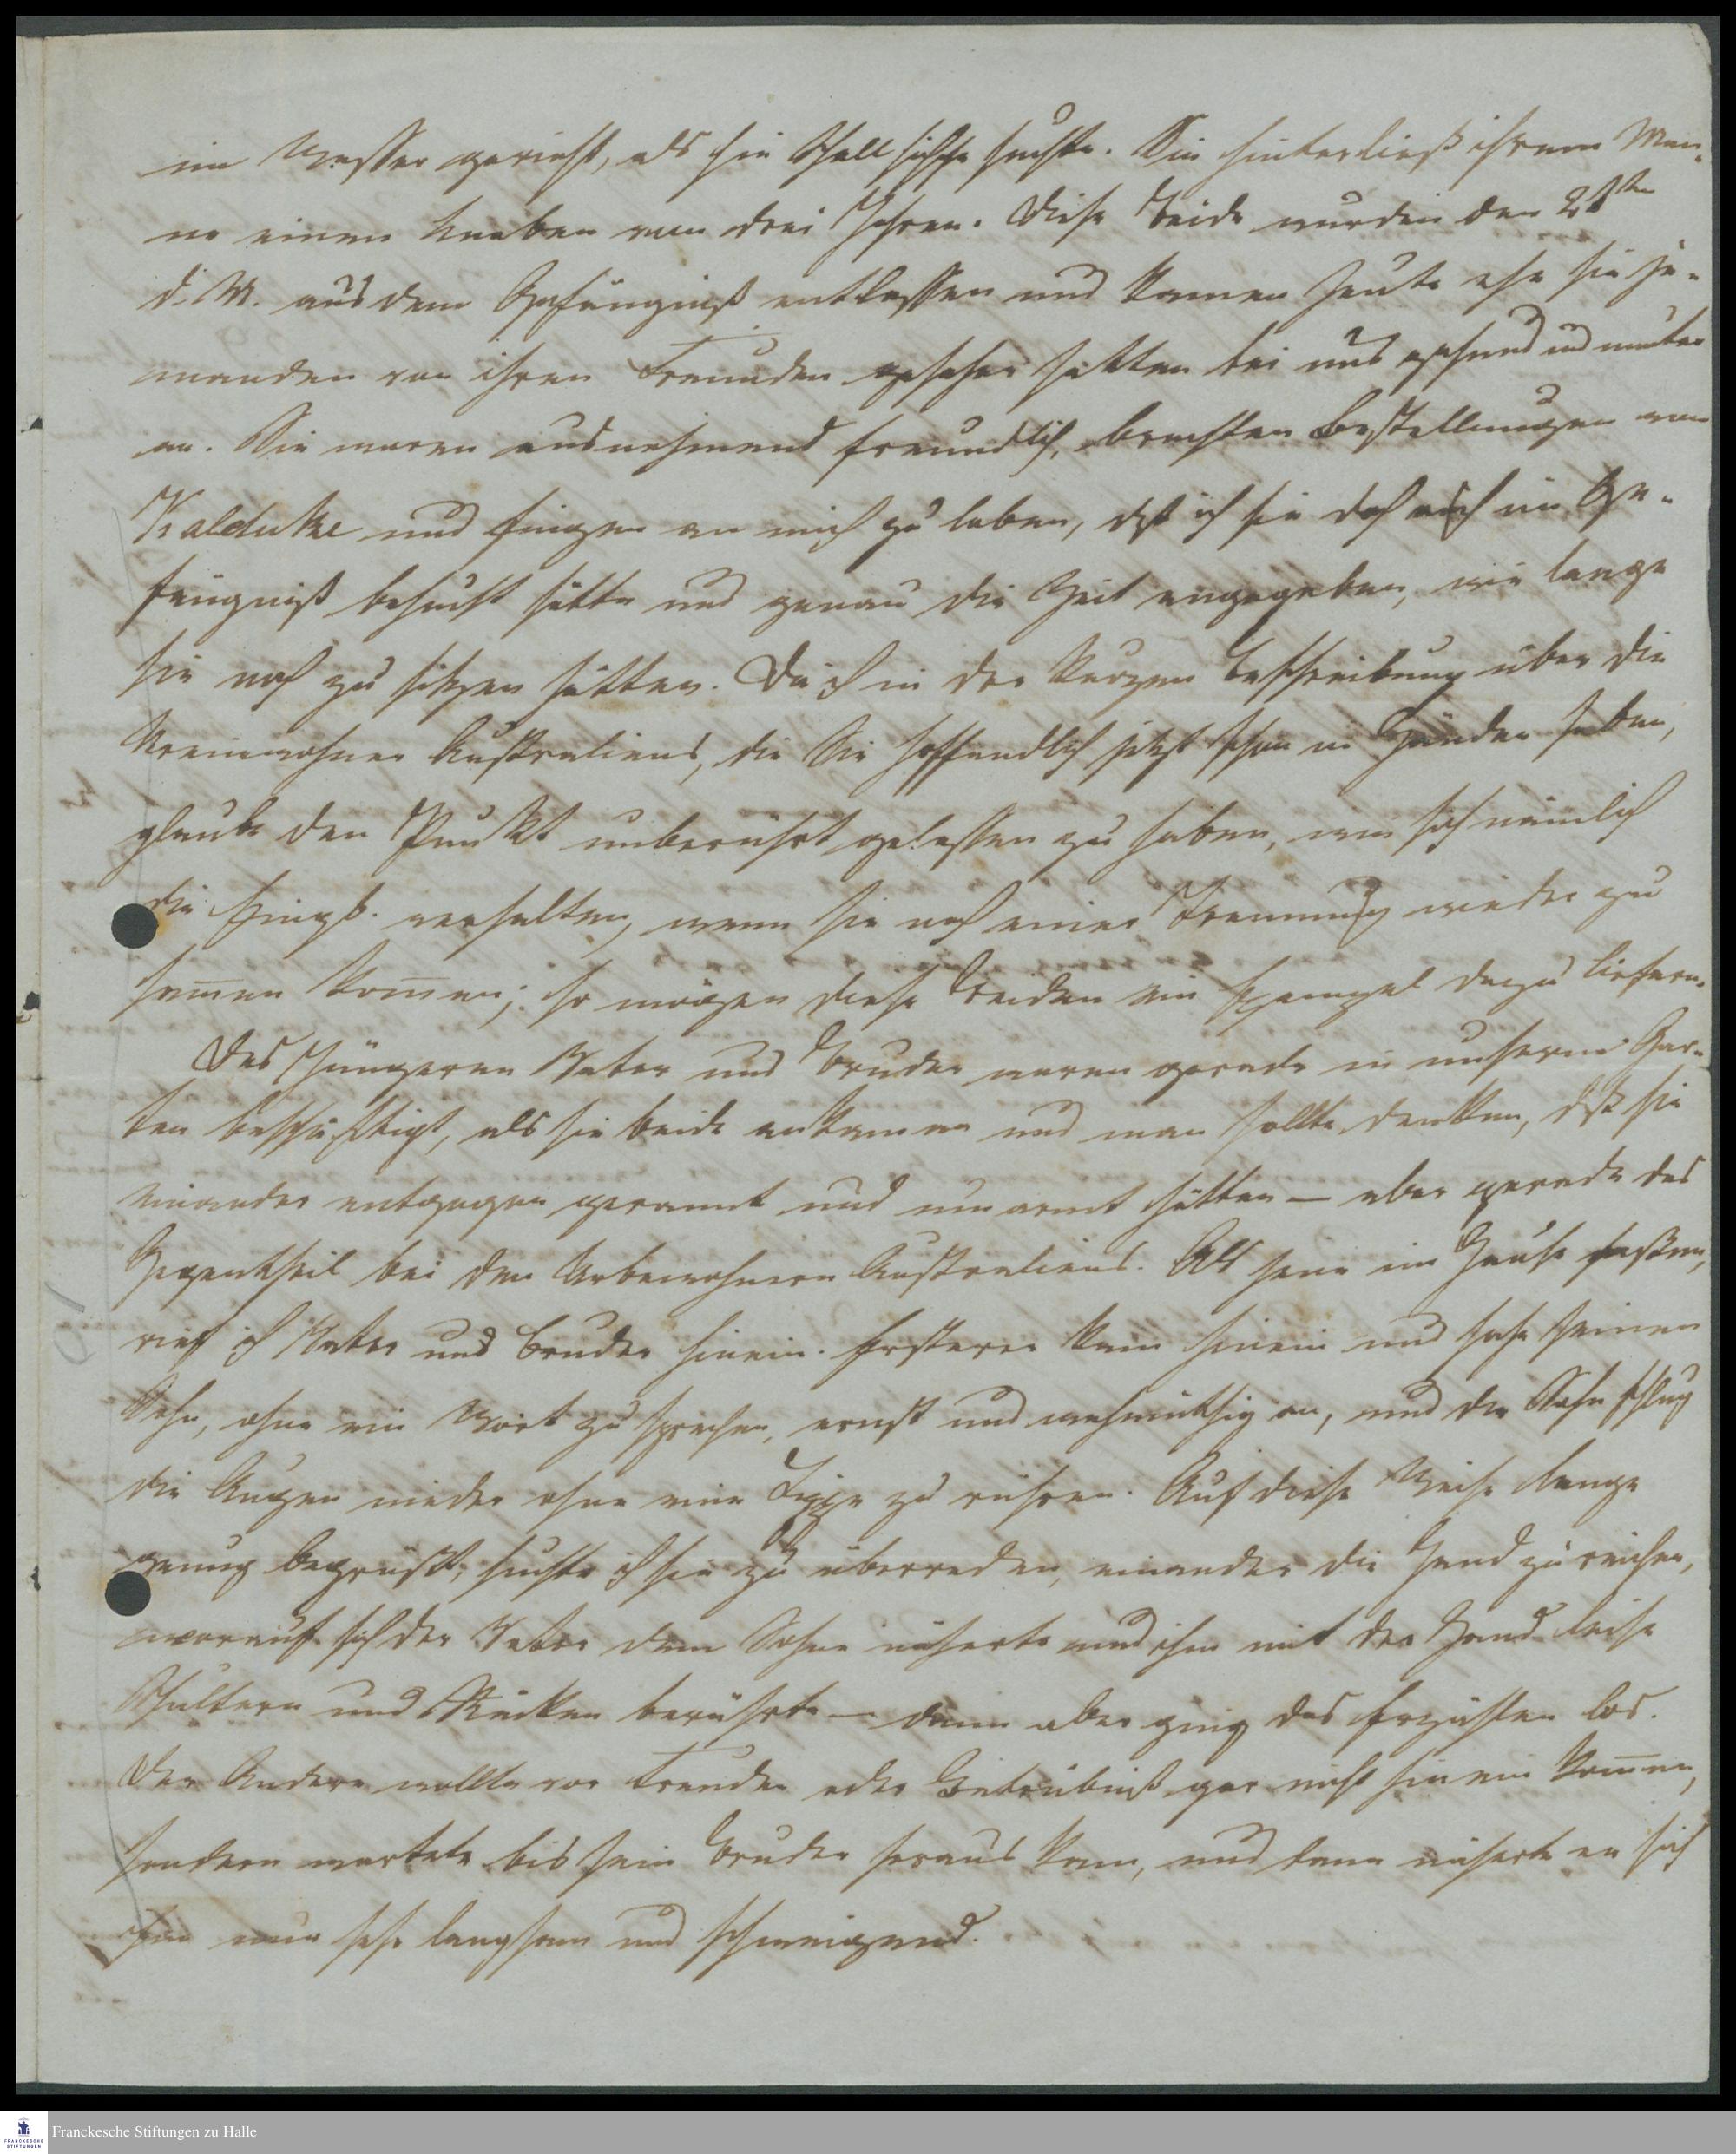 im Wasser gereicht, als sie Schellfische suchte. Sie hinterließ ihrem Man-
ne einen Knaben von drei Jahren. Diese beide wurden den 28sten
d. M. aus dem Gefängniß entlassen und kamen heute ehe sie je-
manden von ihren Freunden gesehen hatten bei uns gesund und munter
an. Sie waren ausnehmend freundlich, brachten Bestellungen von
Kalduke und fingen an mich zu loben, daß ich sie doch auch im Ge-
fängniß besucht hätte und genau die Zeit angegeben, wie lange
sie noch zu sitzen hätten. Da ich in der kurzen Beschreibung über die
Ureinwohner Australiens, die Sie hoffendlich jetzt schon in Händen haben,
glaube den Punkt unberührt gelassen zu haben, wie sich nämlich
die Eingb. verhalten, wenn sie nach einer Trennung wieder zu
sam̅en kom̅en; so mögen diese Beiden ein Exempel dazu liefern.
Des Jüngeren Vater und Bruder waren gerade in unserm Gar-
ten beschäftigt, als sie beide ankamen und man sollte denken, daß sie
einander entgegen gerannt und umarmt hätten — aber gerade das
Gegentheil bei den Urbewohnern Australiens. Als jene im Hause saßen,
rief ich Vater und Bruder hinein. Ersterer kam hinein und sahe seinen
Sohn, ohne ein Wort zu sprechen, ernst und wehmüthig an, und der Sohn schlug
die Augen nieder ohne eine Lippe zu rühren. Auf diese Weise lange
genug begrüßt, suchte ich sie zu überreden, einander die Hand zu reichen,
worauf sich der Vater dem Sohne näherte und ihm mit der Hand leise
Schultern und Rücken berührte — dann aber ging das Erzählen los.
Der Andere wollte vor Freuden oder Betrübniß gar nicht hinein kom̅en,
sondern wartete bis sein Bruder heraus kam, und dann näherte er sich
ihm nur sehr langsam und schweigend.
Franckesche Stiftungen zu Halle